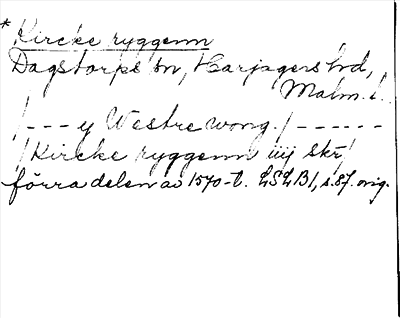 * Kircke ryggenn
Dagstorps sn, Harjagers hd,
Malm. l.
/--- y Westre wong./ ------
/Kircke ryggenn iiij skr/
förra delen av 1570-t. LSLB1, s.87. orig.